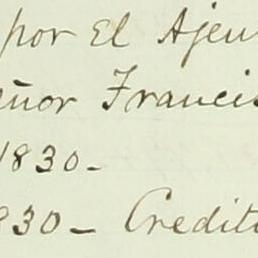 por El Ajen
eñor Francis
1830-
830- Credito